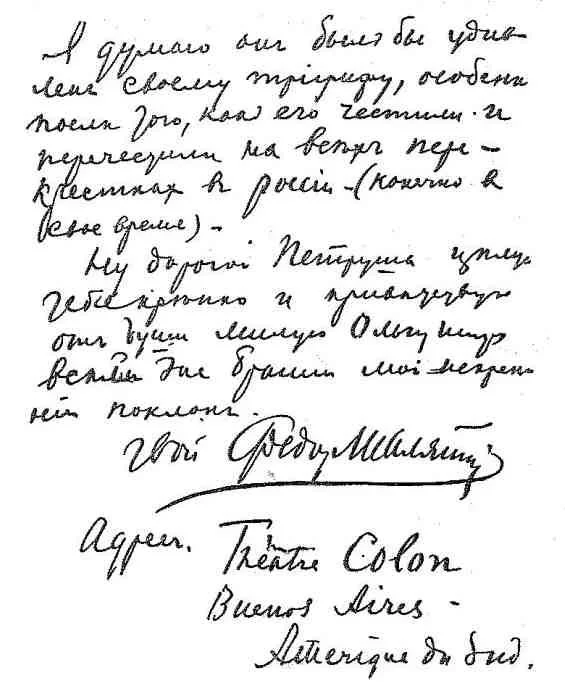 Я думаю онъ былъ бы удив-
ленъ своему тріумфу, особенн
посля того, как его честили и
перечестили на всѣхъ пере-
крестках в россіи - (конечно в
свое время) -
Ну дорогой Петруша цѣлую
тебя крѣпко и привѣтствую
отъ души милую Ольгу
всѣмъ мой искрен-
ній поклонъ.
твой Федор Шаляпин
Адрес. Théâtre Colon
Buenos Aires -
Amerique du Sud.